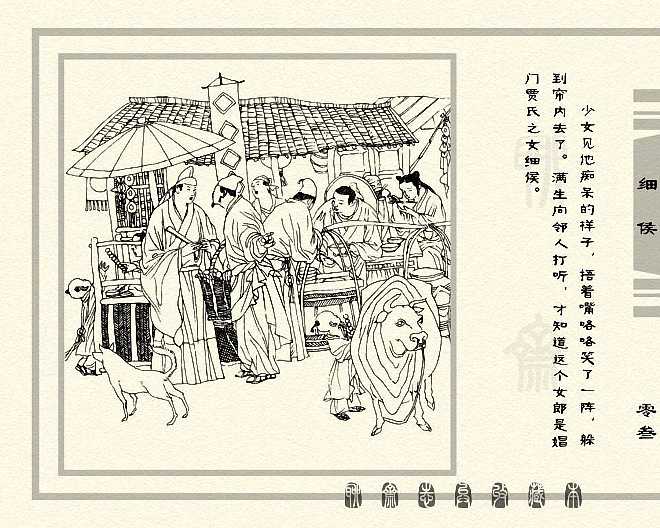 少女见他痴呆的样子，捂着嘴咯咯笑了一阵，躲
到帘内去了。满生向邻人打听，才知道这个女郎是娼
门贾氏之女细侯。
细侯
零叁
聊斋志异收藏本